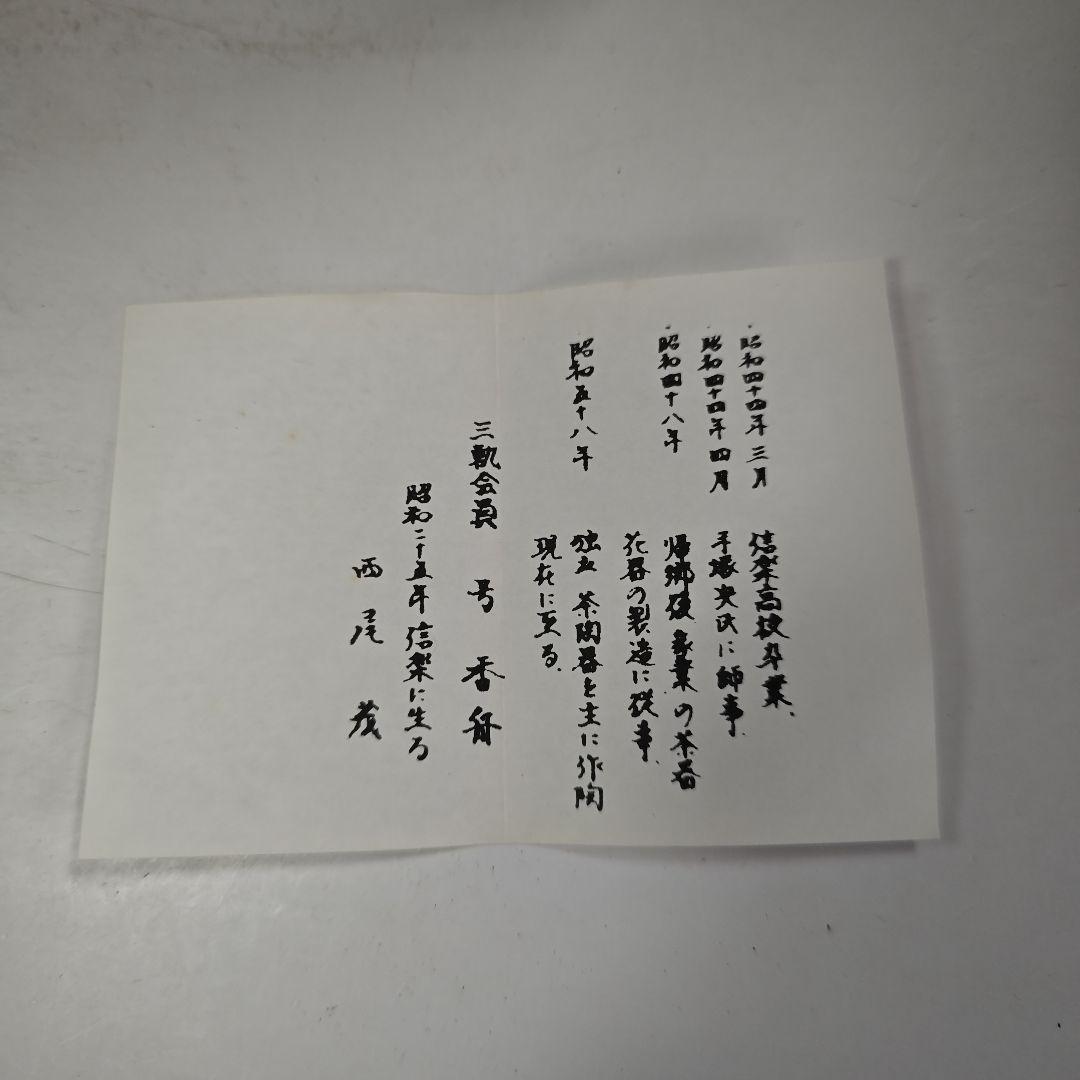 ・昭和四十四年三月 信楽高校卒業、
・昭和四十四年四月 手塚央氏に師事、
・昭和四十八年 帰郷後家業の茶器
花器の製造に従事、
昭和五十八年 独立 茶陶器を主に作陶
現在に至る、
三軌会員 号 香舟
昭和二十五年 信楽に生る
西尾 茂